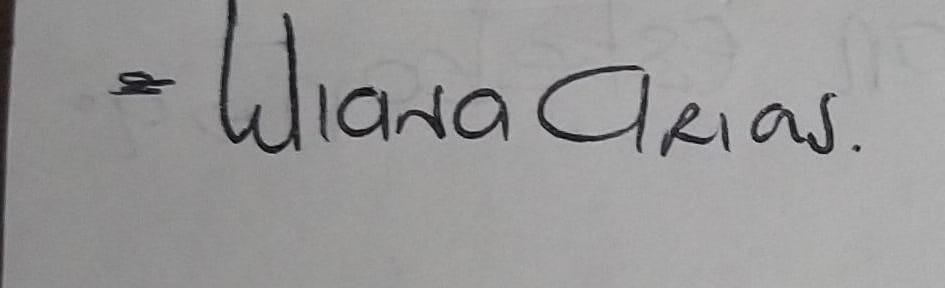 = Wiana Arias.